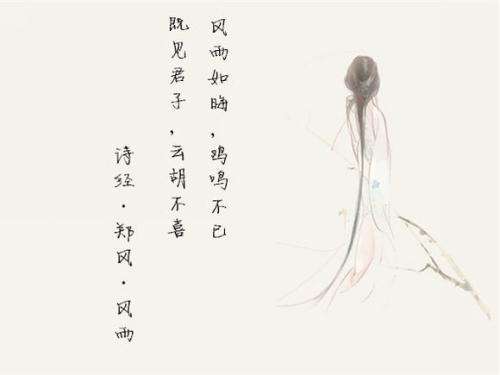 风雨如晦，鸡鸣不已
既见君子，云胡不喜
诗经·郑风·风雨